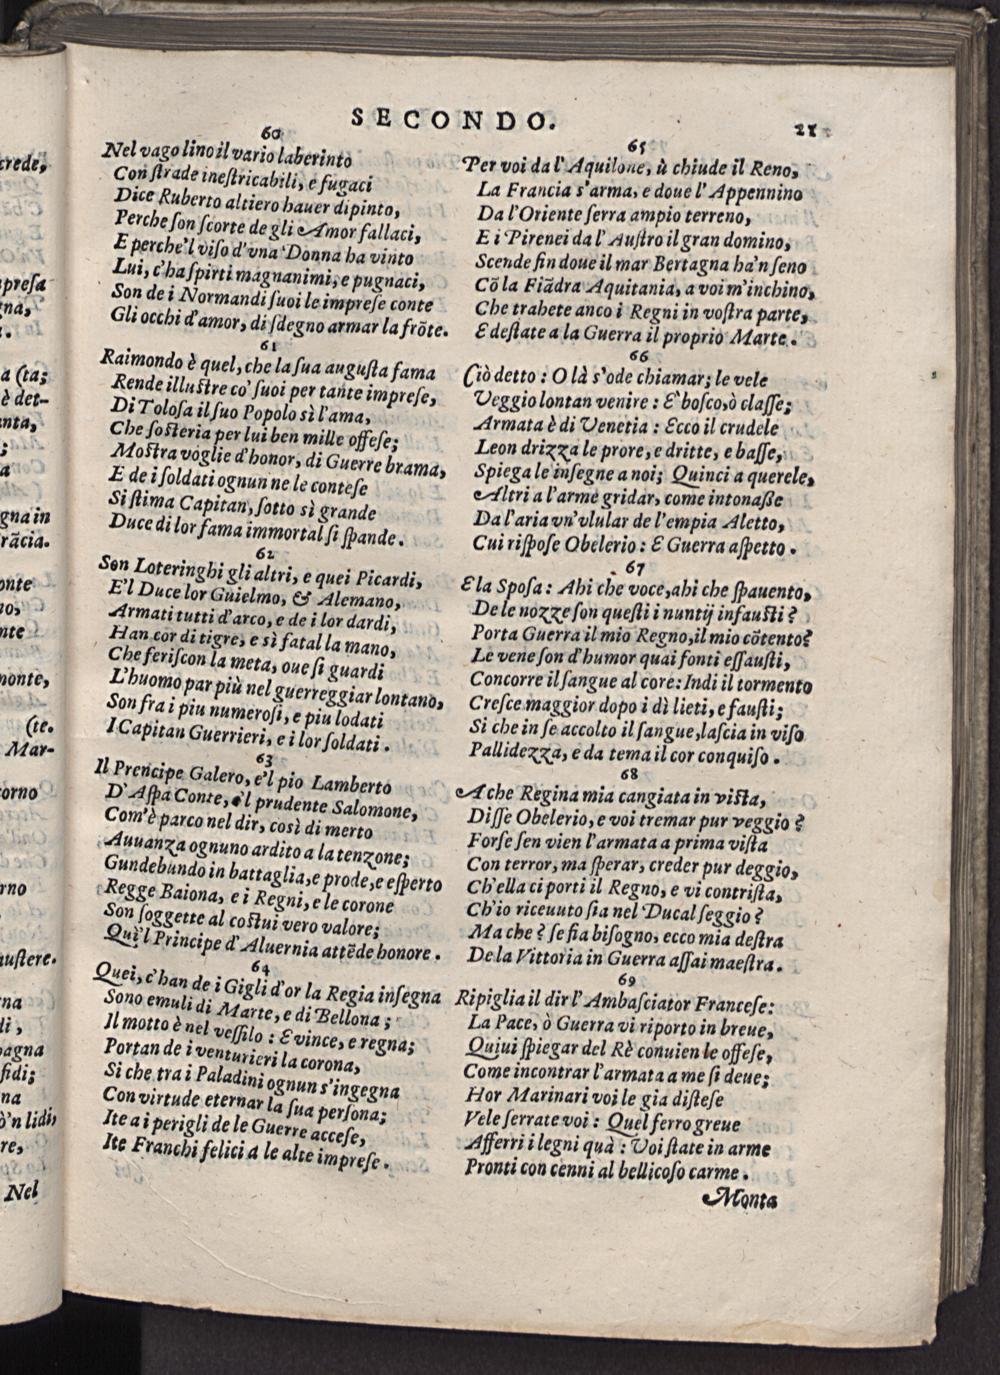 SECONDO.
21
60
Nel vago lino il vario laberinto
Con ſtrade ineſtricabili, e fugaci
Dice Ruberto altiero hauer dipinto,
Perche ſon ſcorte de gli Amor fallaci,
E perche'l viſo d'vna Donna ha vinto
Lui, c'ha ſpirti magnanimi, e pugnaci,
Son de i Normandi ſuoi le impreſe conte
Gli occhi d'amor, di ſdegno armar la frõte.
61
Raimondo è quel, che la ſua auguſta fama
Rende illuſtre co' ſuoi per tante impreſe,
Di Toloſa il ſuo Popolo sì l'ama,
Che ſoſteria per lui ben mille offeſe;
Moſtra voglie d'honor, di Guerre brama,
E de i ſoldati ognun ne le conteſe
Si ſtima Capitan, ſotto sì grande
Duce di lor fama immortal ſi ſpande.
62
Son Loteringhi gli altri, e quei Picardi,
E'l Duce lor Guielmo, & Alemano,
Armati tutti d'arco, e de i lor dardi,
Han cor di tigre, e sì fatal la mano,
Che feriſcon la meta, oue ſi guardi
L'huomo par più nel guerreggiar lontano,
Son fra i piu numeroſi, e piu lodati
I Capitan Guerrieri, e i lor ſoldati.
63
Il Prencipe Galero, e'l pio Lamberto
D'Aſpa Conte, e'l prudente Salomone,
Com'è parco nel dir, così di merto
Auuanza ognuno ardito a la tenzone;
Gundebundo in battaglia, e prode, e eſperto
Regge Baiona, e i Regni, e le corone
Son ſoggette al coſtui vero valore;
Quì'l Principe d'Aluernia attẽde honore.
64
Quei, c'han de i Gigli d'or la Regia inſegna
Sono emuli di Marte, e di Bellona;
Il motto è nel veſſilo: E vince, e regna;
Portan de i venturieri la corona,
Si che tra i Paladini ognun s'ingegna
Con virtude eternar la ſua perſona;
Ite a i perigli de le Guerre acceſe,
Ite Franchi felici a le alte impreſe.
65
Per voi da l'Aquilone, ù chiude il Reno,
La Francia s'arma, e doue l'Appennino
Da l'Oriente ſerra ampio terreno,
E i Pirenei da l'Auſtro il gran domino,
Scende fin doue il mar Bertagna ha'n ſeno
Cõ la Fiãdra Aquitania, a voi m'inchino,
Che trahete anco i Regni in voſtra parte,
E deſtate a la Guerra il proprio Marte.
66
Ciò detto: O là s'ode chiamar; le vele
Veggio lontan venire: E' boſco, ò claſſe;
Armata è di Venetia: Ecco il crudele
Leon drizza le prore, e dritte, e baſſe,
Spiega le inſegne a noi; Quinci a querele,
Altri a l'arme gridar, come intonaſſe
Da l'aria vn'vlular de l'empia Aletto,
Cui riſpoſe Obelerio: E Guerra aſpetto.
67
E la Spoſa: Ahi che voce, ahi che ſpauento,
De le nozze ſon queſti i nuntij infauſti?
Porta Guerra il mio Regno, il mio cõtento?
Le vene ſon d'humor quai fonti eſſauſti,
Concorre il ſangue al core: Indi il tormento
Creſce maggior dopo i dì lieti, e fauſti;
Si che in ſe accolto il ſangue, laſcia in viſo
Pallidezza, e da tema il cor conquiſo.
68
A che Regina mia cangiata in viſta,
Diſſe Obelerio, e voi tremar pur veggio?
Forſe ſen vien l'armata a prima viſta
Con terror, ma ſperar, creder pur deggio,
Ch'ella ci porti il Regno, e vi contriſta,
Ch'io riceuuto ſia nel Ducal ſeggio?
Ma che? ſe fia biſogno, ecco mia deſtra
De la Vittoria in Guerra aſſai maeſtra.
69
Ripiglia il dir l'Ambaſciator Franceſe:
La Pace, ò Guerra vi riporto in breue,
Quiui ſpiegar del Rè conuien le offeſe,
Come incontrar l'armata a me ſi deue;
Hor Marinari voi le gia diſteſe
Vele ſerrate voi: Quel ferro greue
Afferri i legni quà: Voi ſtate in arme
Pronti con cenni al bellicoſo carme.
Monta
crede,
preſa
gna,
a (ta;
è det-
nta,
;
a
gna in
rãcia.
onte
no,
nte
monte,
(te.
Mar-
orno
rno
auſtere.
na
di,
pagna
fidi;
na
ò'n lidi,
re,
Nel